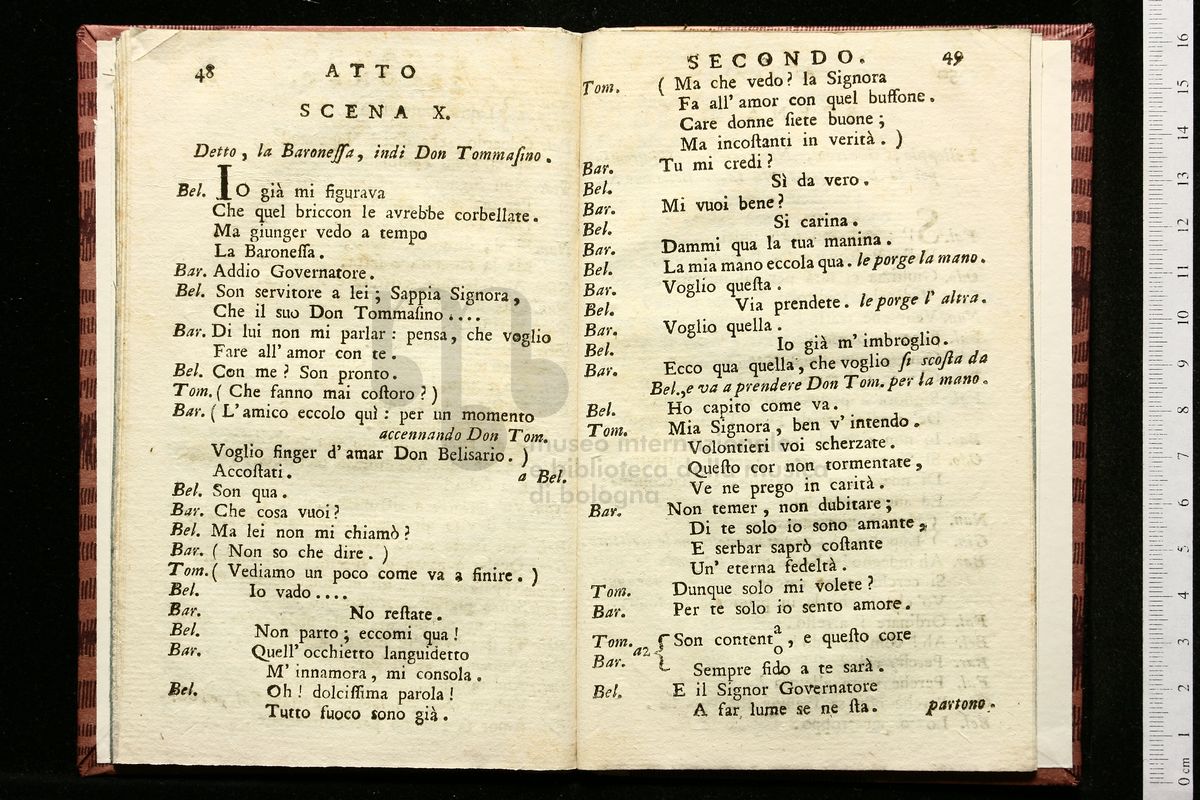 48 ATTO
SCENA X.
Detto, la Baroneſſa, indi Don Tommaſino.
Bel. IO già mi figurava
Che quel briccon le avrebbe corbellate.
Ma giunger vedo a tempo
La Baroneſſa.
Bar. Addio Governatore.
Bel. Son servitore a lei; Sappia Signora,
Che il suo Don Tommaſino....
Bar. Di lui non mi parlar: pensa, che voglio
Fare all' amor con te.
Bel. Con me? Son pronto.
Tom. (Che fanno mai coſtoro?)
Bar. (L' amico eccolo quì: per un momento
accennando Don Tom.
Voglio finger d' amar Don Belisario.)
Accoſtati. a Bel.
Bel. Son qua.
Bar. Che cosa vuoi?
Bel. Ma lei non mi chiamò?
Bar. (Non so che dire.)
Tom. (Vediamo un poco come va a finire.)
Bel. Io vado....
Bar. No reſtate.
Bel. Non parto; eccomi qua!
Bar. Quell' occhietto languidetto
M' innamora, mi consola.
Bel. Oh! dolciſſima parola!
Tutto fuoco sono già.
SECONDO. 49
Tom. (Ma che vedo? la Signora
Fa all' amor con quel buffone.
Care donne ſiete buone;
Ma incoſtanti in verità.)
Bar. Tu mi credi?
Bel. Sì da vero.
Bar. Mi vuoi bene?
Bel. Si carina.
Bar. Dammi qua la tua manina.
Bel. La mia mano eccola qua. le porge la mano.
Bar. Voglio queſta.
Bel. Via prendete. le porge l' altra.
Bar. Voglio quella.
Bel. Io già m' imbroglio.
Bar. Ecco qua quella, che voglio ſi scoſta da
Bel., e va a prendere Don Tom. per la mano.
Bel. Ho capito come va.
Tom. Mia Signora, ben v' intendo.
Volontieri voi scherzate.
Queſto cor non tormentate,
Ve ne prego in carità.
Bar. Non temer, non dubitare;
Di te solo io sono amante,
E serbar saprò coſtante
Un' eterna fedeltà.
Tom. Dunque solo mi volete?
Bar. Per te solo io sento amore.
Tom. a2 { Son content a/o, e queſto core
Bar. Sempre fido a te sarà.
Bel. E il Signor Governatore
A far lume se ne ſta. partono.
museo internazionale
e biblioteca della musica
di bologna
0 cm 1 2 3 4 5 6 7 8 9 10 11 12 13 14 15 16